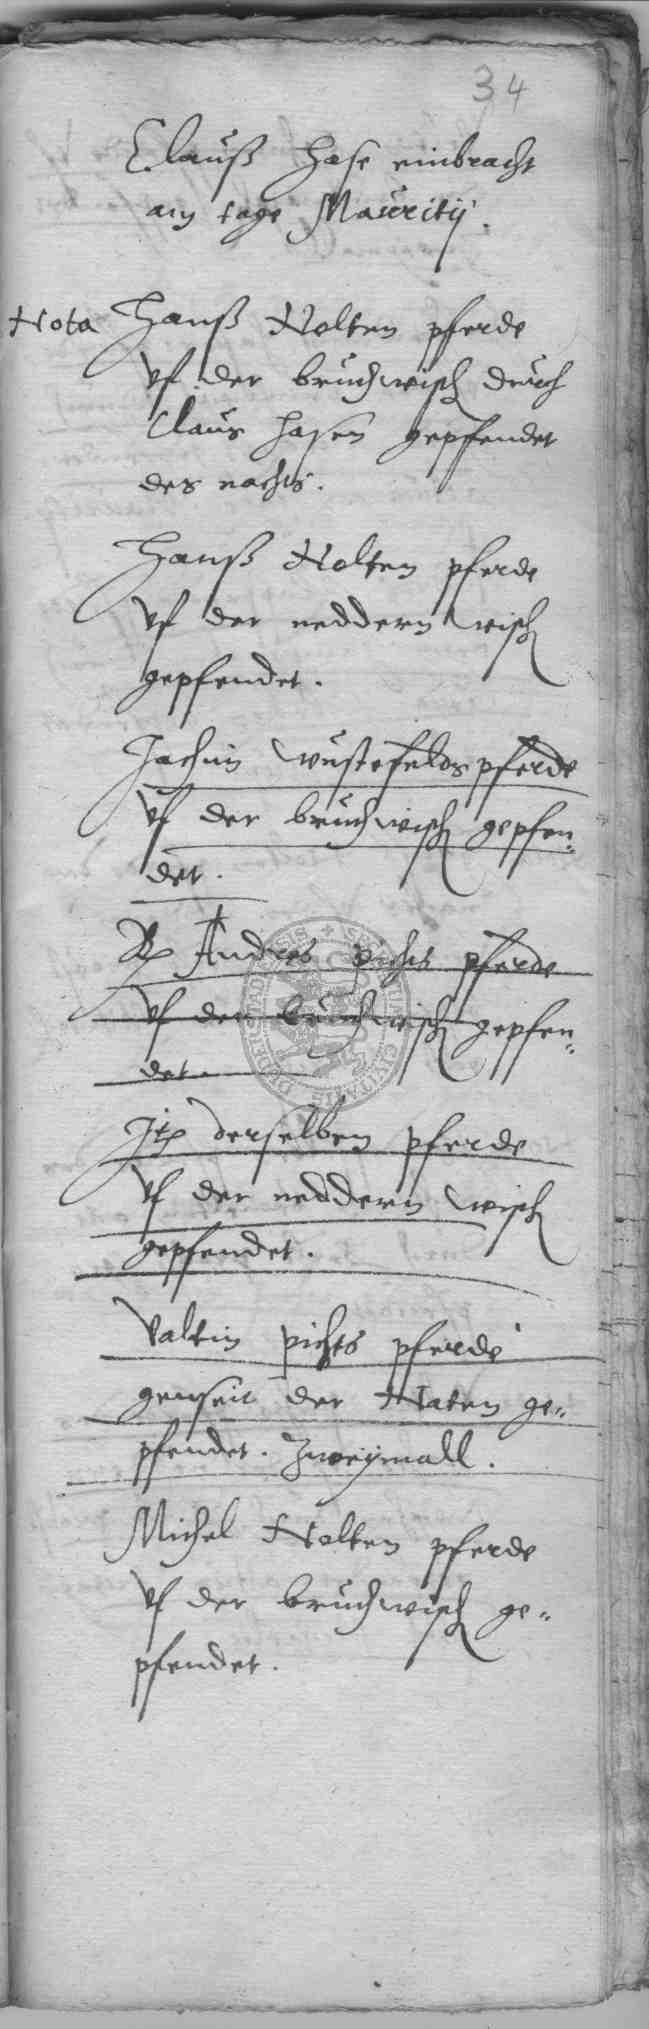 34
Clauß Hase einbracht
am tage Mauritij.
Nota Hanß Nolten pferde
vf der bruchwisch durch
Claus Hasen gepfendet
des nachts.
Hanß Nolten pferde
vf der neddern wisch
gepfendet.
Jachim Wustefelds pferde
vf der bruchwisch gepfen„
det.
Andres pichts pferde
vf der bruchwisch gepfen„
det.
Jtem derselben pferde
vf der neddern wisch
gepfendet.
Valtin pichts pferde
genseit der Naten ge„
pfendet. Zweymall.
Michel Nolten pferde
vf der bruchwisch ge„
pfendet.